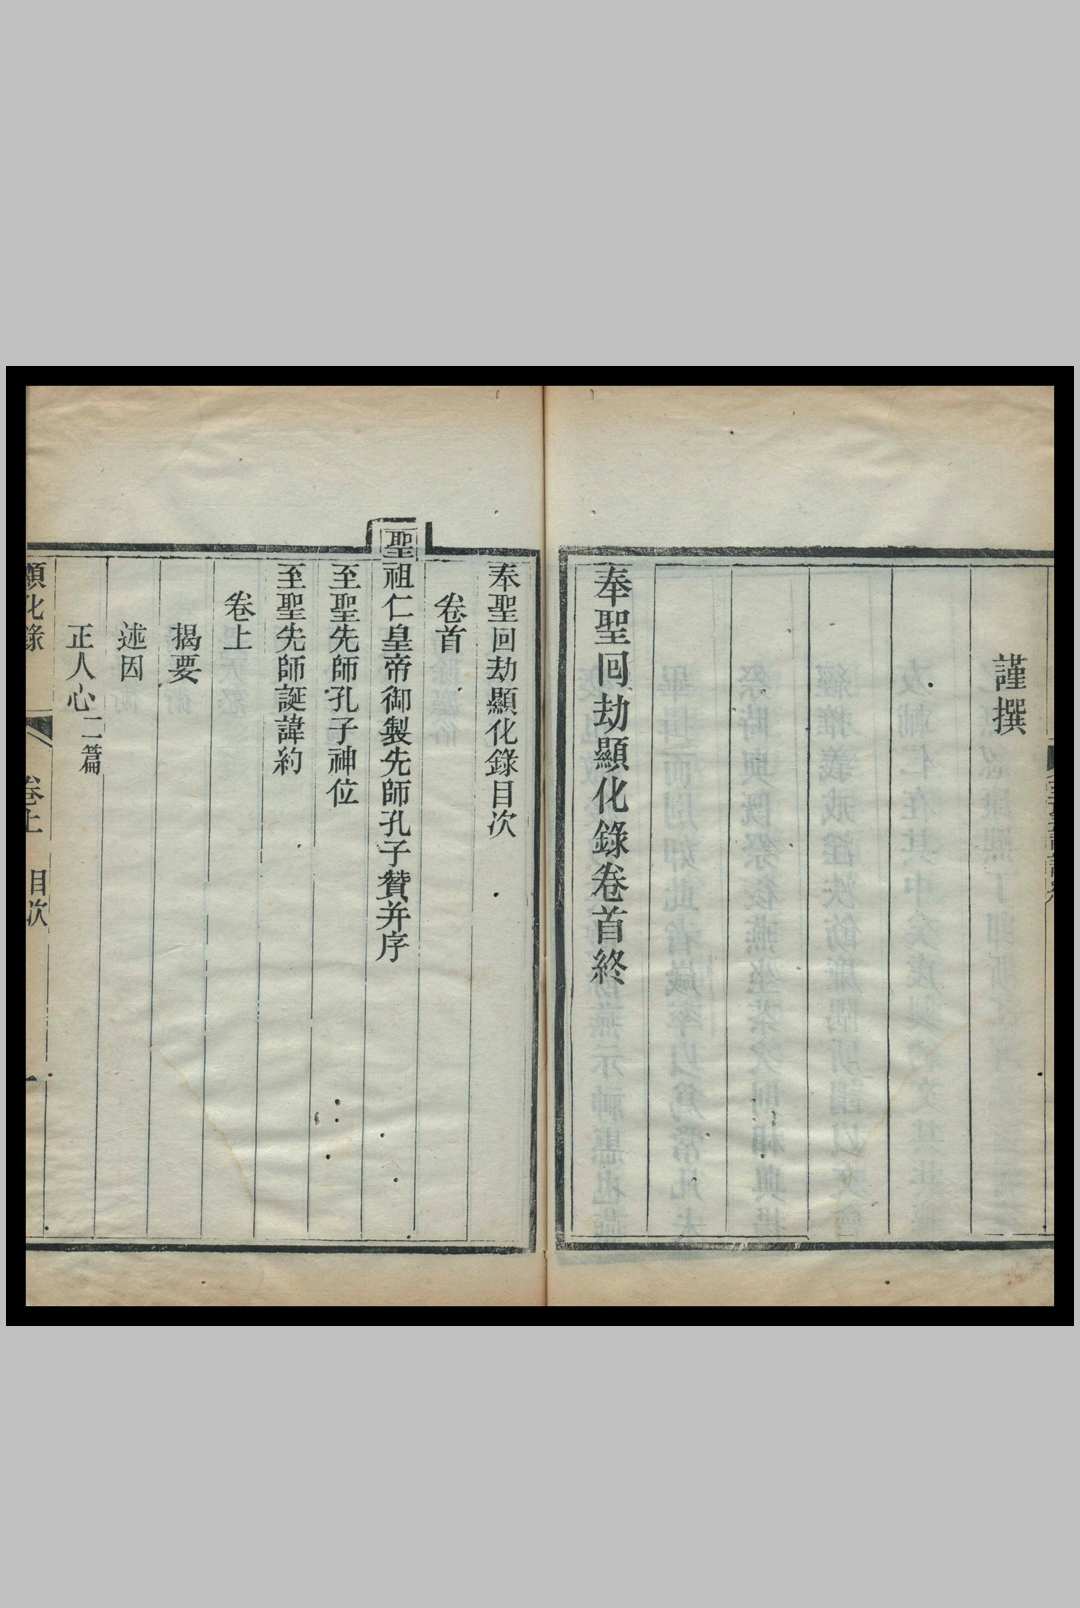 謹撰
奉聖回劫顯化錄卷首終
奉聖回劫顯化錄目次
卷首
聖祖仁皇帝御製先師孔子贊并序
至聖先師孔子神位
至聖先師誕諱約
卷上
揭要
述因
正人心二篇
顯化錄 卷上 目次 一